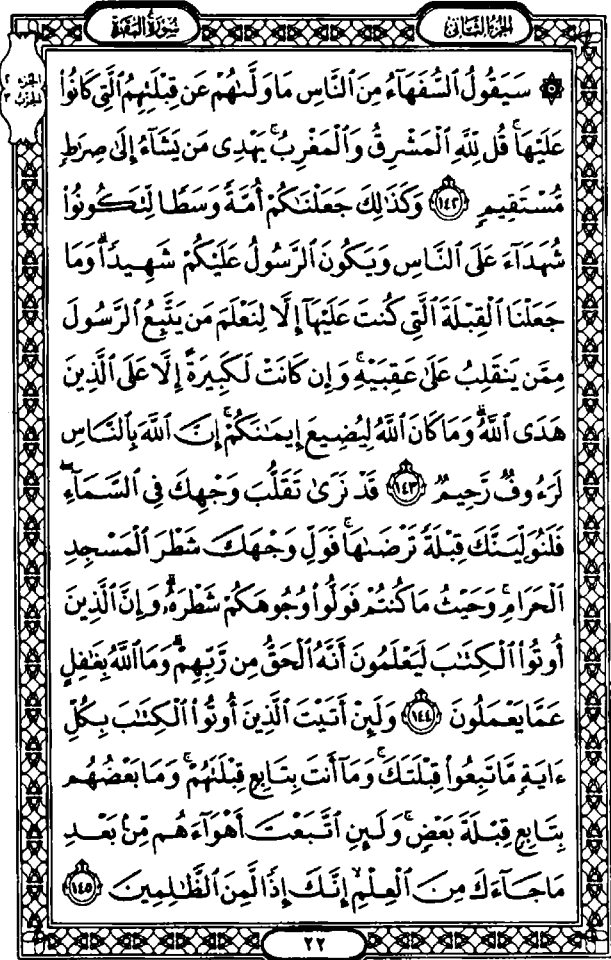 الجزء الثاني
سورة البقرة
۞ سَيَقُولُ ٱلسُّفَهَآءُ مِنَ ٱلنَّاسِ مَا وَلَّىٰهُمْ عَن قِبْلَتِهِمُ ٱلَّتِى كَانُوا۟
عَلَيْهَا ۚ قُل لِّلَّهِ ٱلْمَشْرِقُ وَٱلْمَغْرِبُ ۚ يَهْدِى مَن يَشَآءُ إِلَىٰ صِرَٰطٍ
مُّسْتَقِيمٍ ١٤٢ وَكَذَٰلِكَ جَعَلْنَٰكُمْ أُمَّةً وَسَطًا لِّتَكُونُوا۟
شُهَدَآءَ عَلَى ٱلنَّاسِ وَيَكُونَ ٱلرَّسُولُ عَلَيْكُمْ شَهِيدًا ۗ وَمَا
جَعَلْنَا ٱلْقِبْلَةَ ٱلَّتِى كُنتَ عَلَيْهَآ إِلَّا لِنَعْلَمَ مَن يَتَّبِعُ ٱلرَّسُولَ
مِمَّن يَنقَلِبُ عَلَىٰ عَقِبَيْهِ ۚ وَإِن كَانَتْ لَكَبِيرَةً إِلَّا عَلَى ٱلَّذِينَ
هَدَى ٱللَّهُ ۗ وَمَا كَانَ ٱللَّهُ لِيُضِيعَ إِيمَٰنَكُمْ ۚ إِنَّ ٱللَّهَ بِٱلنَّاسِ
لَرَءُوفٌ رَّحِيمٌ ١٤٣ قَدْ نَرَىٰ تَقَلُّبَ وَجْهِكَ فِى ٱلسَّمَآءِ ۖ
فَلَنُوَلِّيَنَّكَ قِبْلَةً تَرْضَىٰهَا ۚ فَوَلِّ وَجْهَكَ شَطْرَ ٱلْمَسْجِدِ
ٱلْحَرَامِ ۚ وَحَيْثُ مَا كُنتُمْ فَوَلُّوا۟ وُجُوهَكُمْ شَطْرَهُۥ ۗ وَإِنَّ ٱلَّذِينَ
أُوتُوا۟ ٱلْكِتَٰبَ لَيَعْلَمُونَ أَنَّهُ ٱلْحَقُّ مِن رَّبِّهِمْ ۗ وَمَا ٱللَّهُ بِغَٰفِلٍ
عَمَّا يَعْمَلُونَ ١٤٤ وَلَئِنْ أَتَيْتَ ٱلَّذِينَ أُوتُوا۟ ٱلْكِتَٰبَ بِكُلِّ
ءَايَةٍ مَّا تَبِعُوا۟ قِبْلَتَكَ ۚ وَمَآ أَنتَ بِتَابِعٍ قِبْلَتَهُمْ ۚ وَمَا بَعْضُهُم
بِتَابِعٍ قِبْلَةَ بَعْضٍ ۚ وَلَئِنِ ٱتَّبَعْتَ أَهْوَآءَهُم مِّنۢ بَعْدِ
مَا جَآءَكَ مِنَ ٱلْعِلْمِ ۙ إِنَّكَ إِذًا لَّمِنَ ٱلظَّٰلِمِينَ ١٤٥
٢٢
الجزء ٢
الحزب ٣